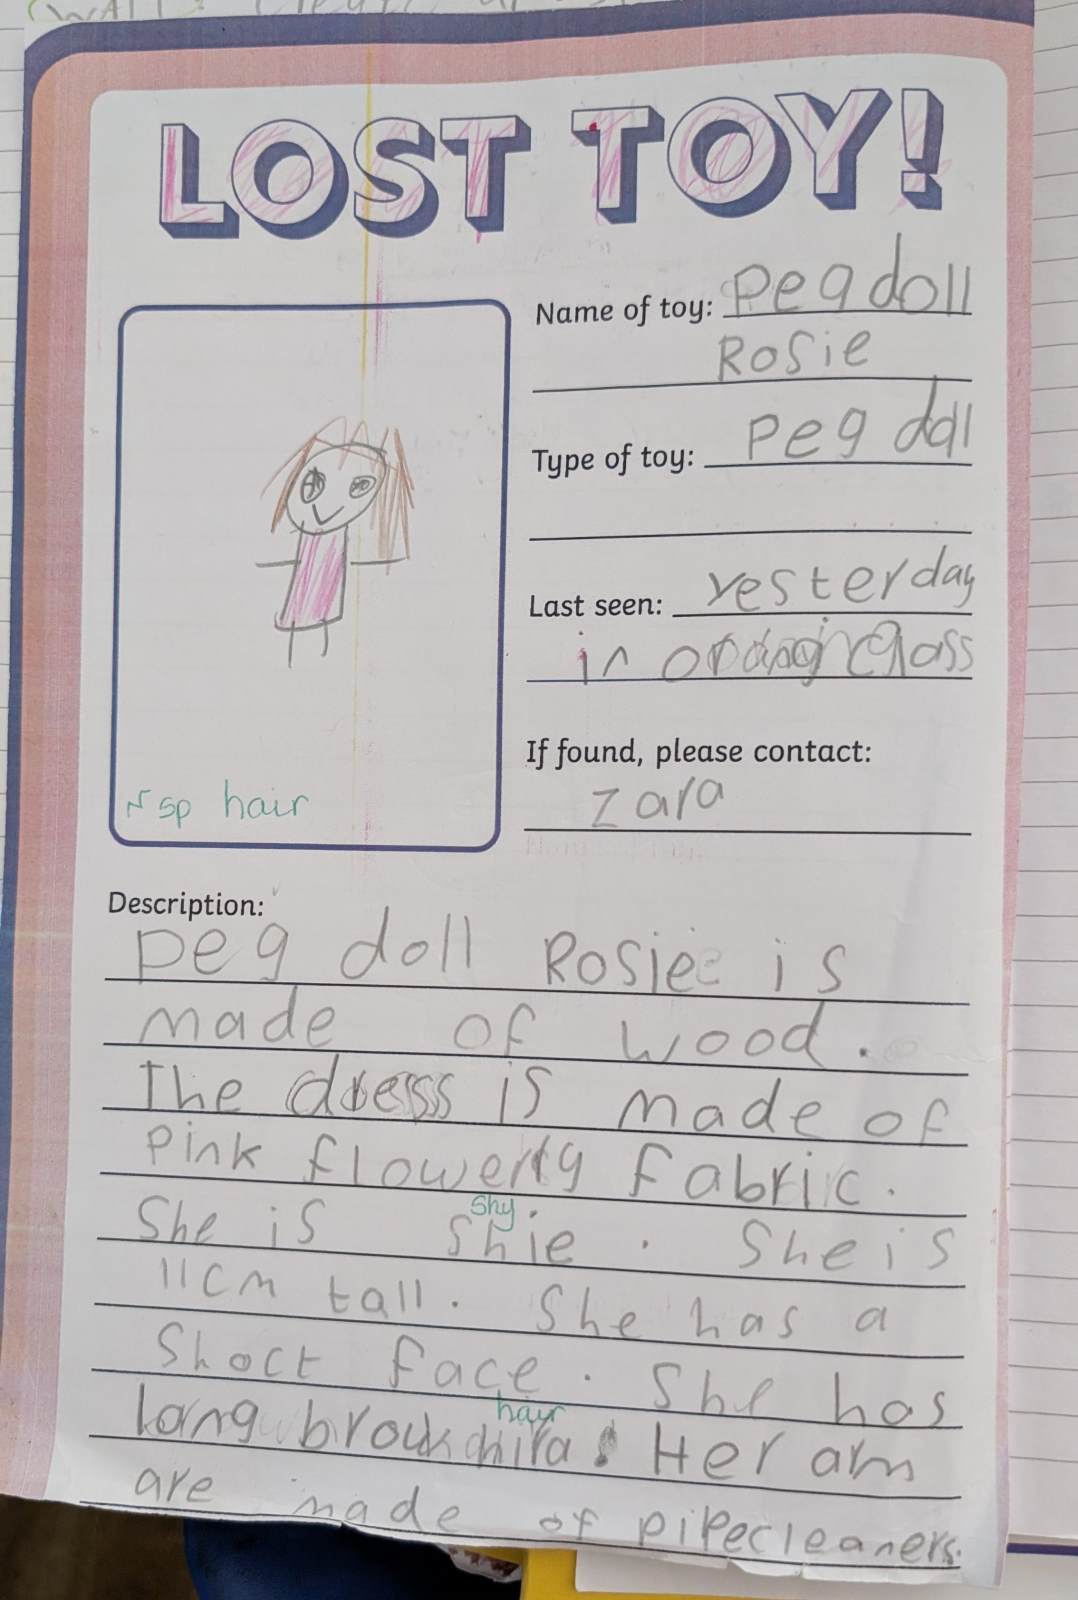 LOST TOY!
Name of toy: peg doll
Rosie
Type of toy: peg doll
Last seen: yesterday
in class
If found, please contact:
zara
sp hair
Description:
peg doll Rosie is
made of wood.
The dress is made of
pink flowery fabric.
shy
She is shie. She is
11cm tall. She has a
Shoct face. She has
hair
long brown Her arm
are made of pipecleaners.